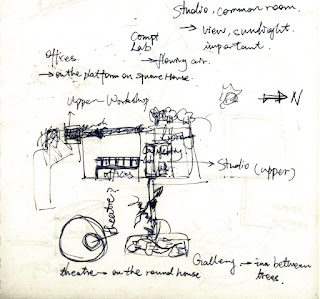 Studio, common room.
→ view, sunlight.
important.
Compt
Lab
→ flowing air.
Offices.
→ on the platform on square House.
Upper Workshop
N
→ Studio (upper)
offices
theatre?
Gallery → in a between
trees.
theatre → on the round house